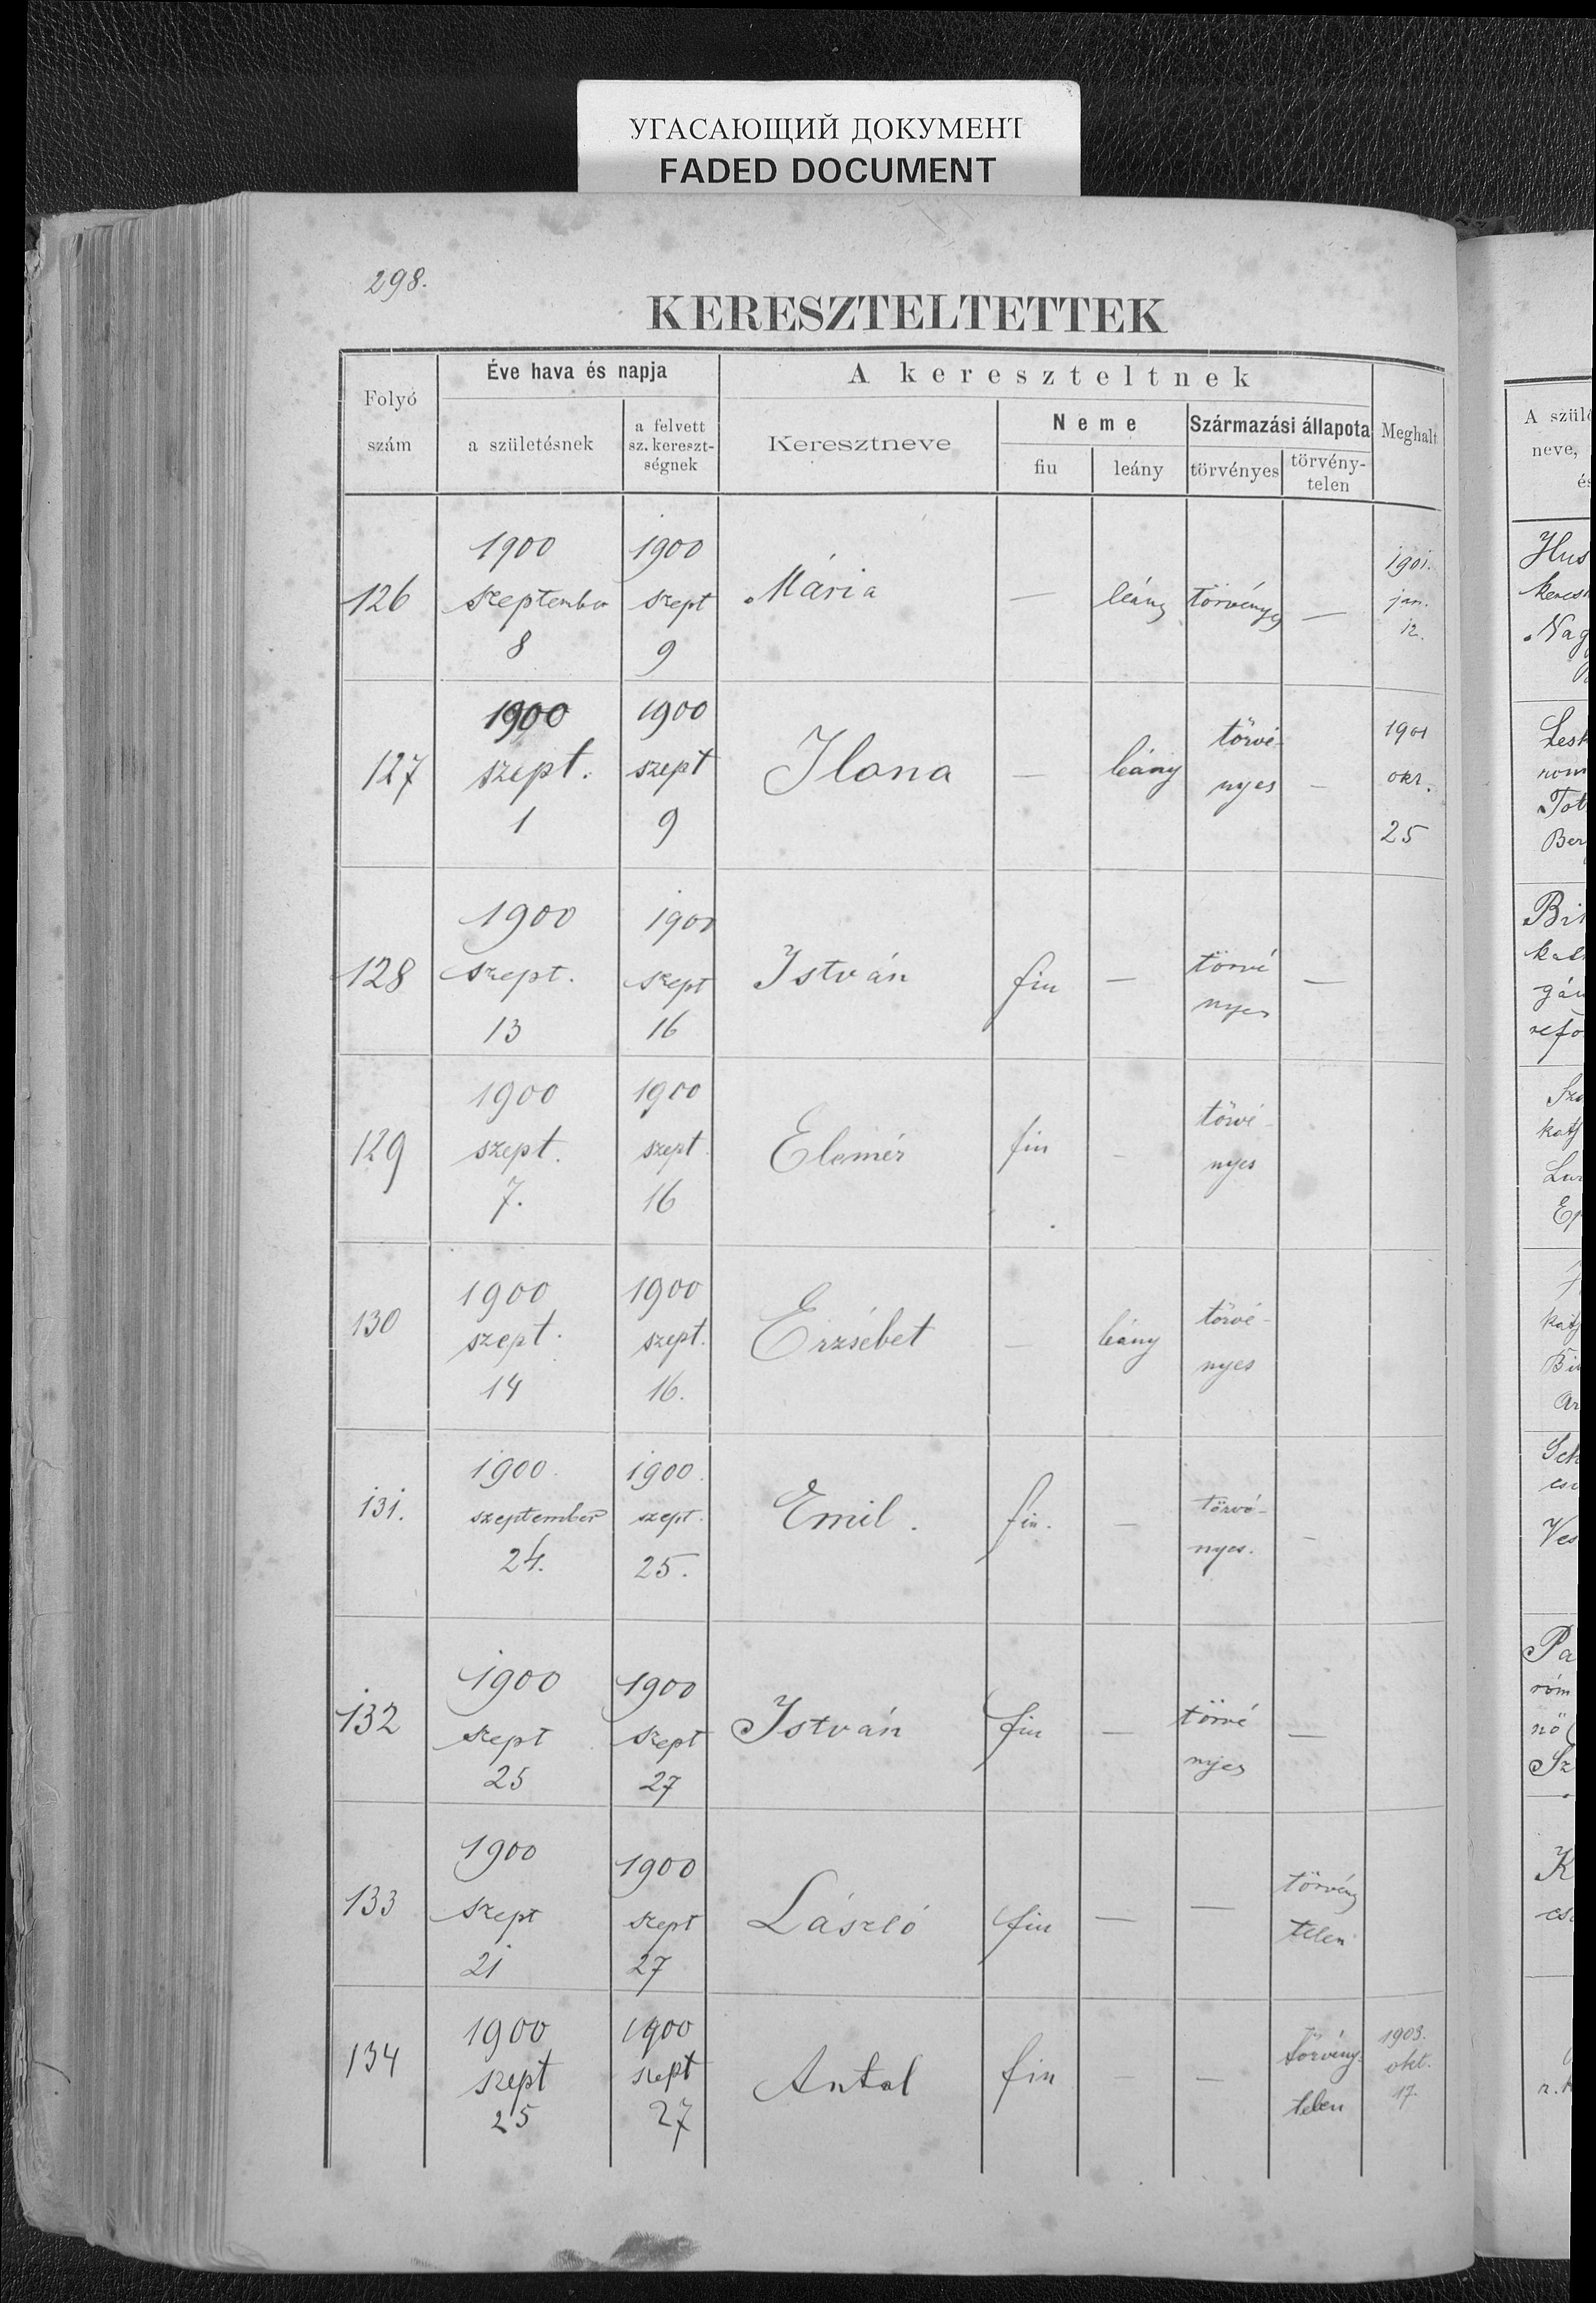 УГАСАЮЩИЙ ДОКУМЕНТ
FADED DOCUMENT
298.
KERESZTELTETTEK
Folyó szám
Éve hava és napja
a születésnek
a felvett sz. kereszt-ségnek
A kereszteltnek
Keresztneve
Neme
fiu
leány
Származási állapota
törvényes
törvény-telen
Meghalt
126
1900 szeptember 8
1900 szept 9
Mária
—
leány
törvényes
—
1901. jan. 12.
127
1900 szept. 1
1900 szept 9
Ilona
—
leány
törvé-nyes
—
1901 okt. 25
128
1900 szept. 13
1900 szept 16
István
fiu
—
törvé nyes
—
129
1900 szept. 7.
1900 szept 16
Elemér
fiu
—
törvé-nyes
130
1900 szept. 14
1900 szept. 16.
Erzsébet
—
leány
törvé-nyes
131.
1900. szeptember 24.
1900. szept. 25.
Emil.
fiu.
—
törvé-nyes.
—
132
1900 szept 25
1900 szept 27
István
fiu
—
törvé nyes
—
133
1900 szept 21
1900 szept 27
László
fiu
—
—
törvény telen
134
1900 szept 25
1900 szept 27
Antal
fiu
—
—
törvény-telen
1903. okt. 17.
A szül
neve,
Hus
Nag
Lesk
nom
Tot
Ber
Bi
gá
refo
kath
Ves
Pa
róm
nő
Sz
K